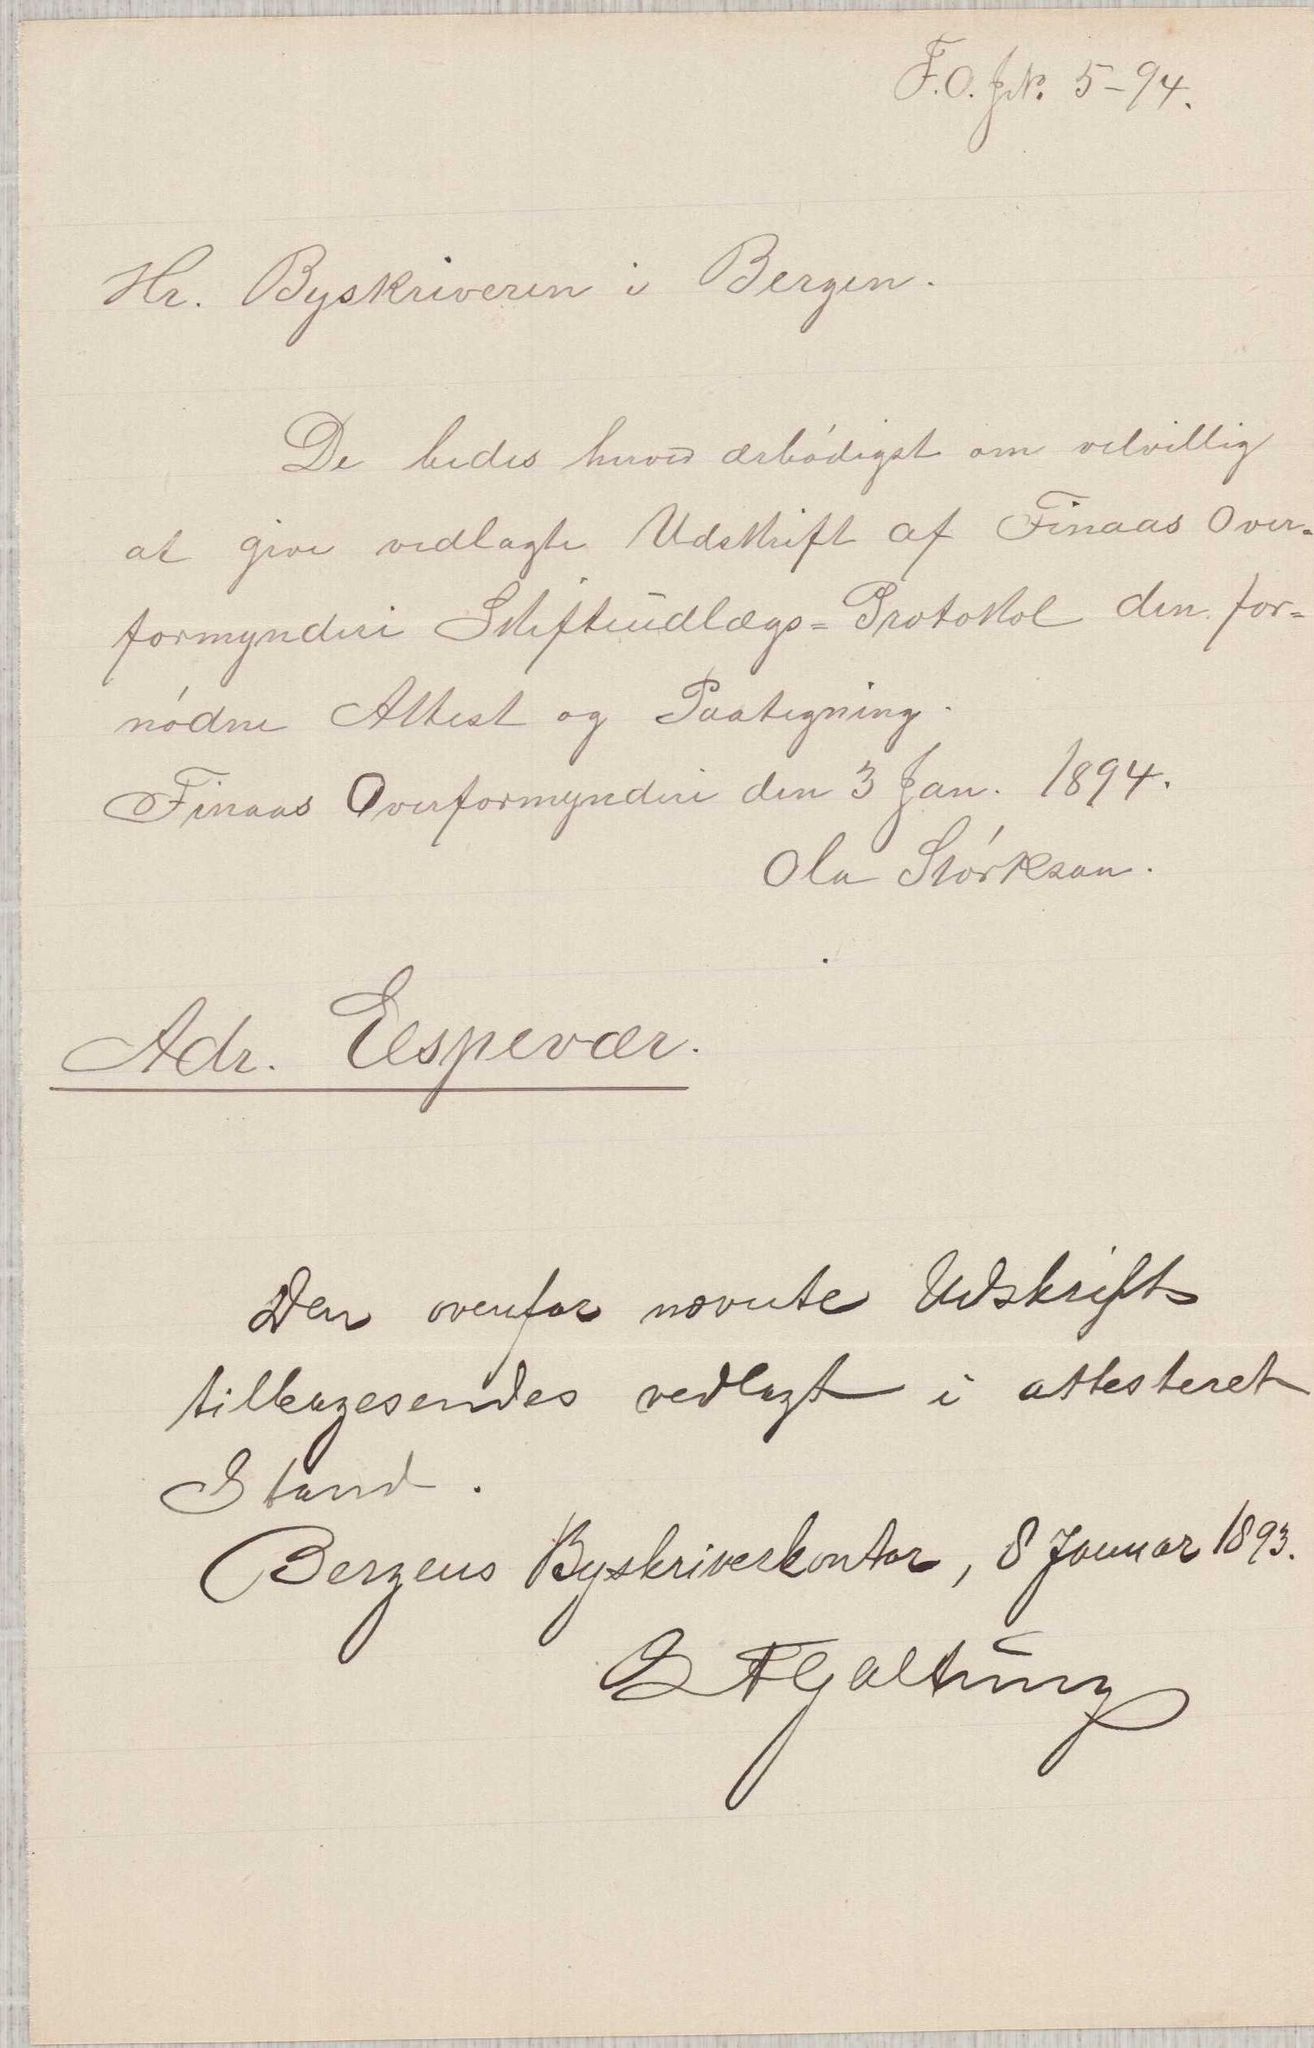 F.O. J№. 5-94.
Hr. Byskriveren i Bergen.
De bedes herved ærbódigst om velvillig
at give vedlagte Udskrift af Finaas Over-
formynderi Skifteudlægs=Protokol den for=
nódne Attest og Paategning.
Finaas Overformynderi den 3 Jan. 1894.
Ola Stórkson.
Adr. Espevær.
Den ovenfor nævnte Udskrift
tilbagesendes vedlagt i attesteret
Stand.
Bergens Byskriverkontor, 8 Januar 1893.
Galtung